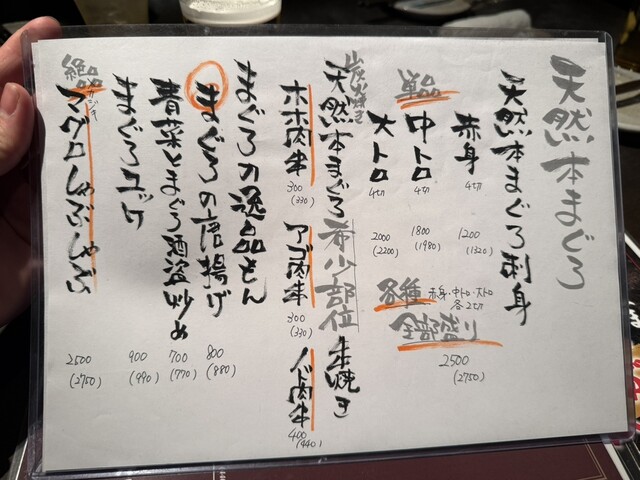 天然本まぐろ
天然本まぐろ刺身
単品
赤身 4切 1200 (1320)
中トロ 4切 1800 (1980)
大トロ 4切 2000 (2200)
各種 赤身・中トロ・大トロ 各2切
全部盛り
2500 (2750)
炭火焼き
天然本まぐろ希少部位串焼き
ホホ肉串 300 (330)
アゴ肉串 300 (330)
ノド肉串 400 (440)
まぐろの逸品もん
まぐろの唐揚げ 800 (880)
青菜とまぐろ酒盗炒め 700 (770)
まぐろユッケ 900 (990)
絶品
マグロしゃぶしゃぶ 2500 (2750)